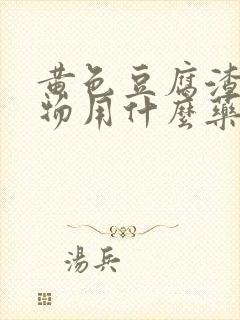 黄色豆腐渣
物用什麼藥
湯兵